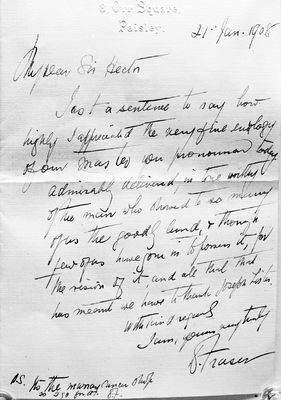 8, Gov Square,
Paisley.
21st Jan. 1908
My dear Sir Hector
Just a sentence to say how
highly I appreciated the very fine eulogy
of our Master you pronounced today
admirably delivered in true worthy
of the man who showed to so many
of us the goodly land, & though
few of us have gone in to possess it, for
the vision of it and all that that
has meant we have to thank Joseph Lister.
With kind regards
I am, yours very truly
Fraser
P.S.